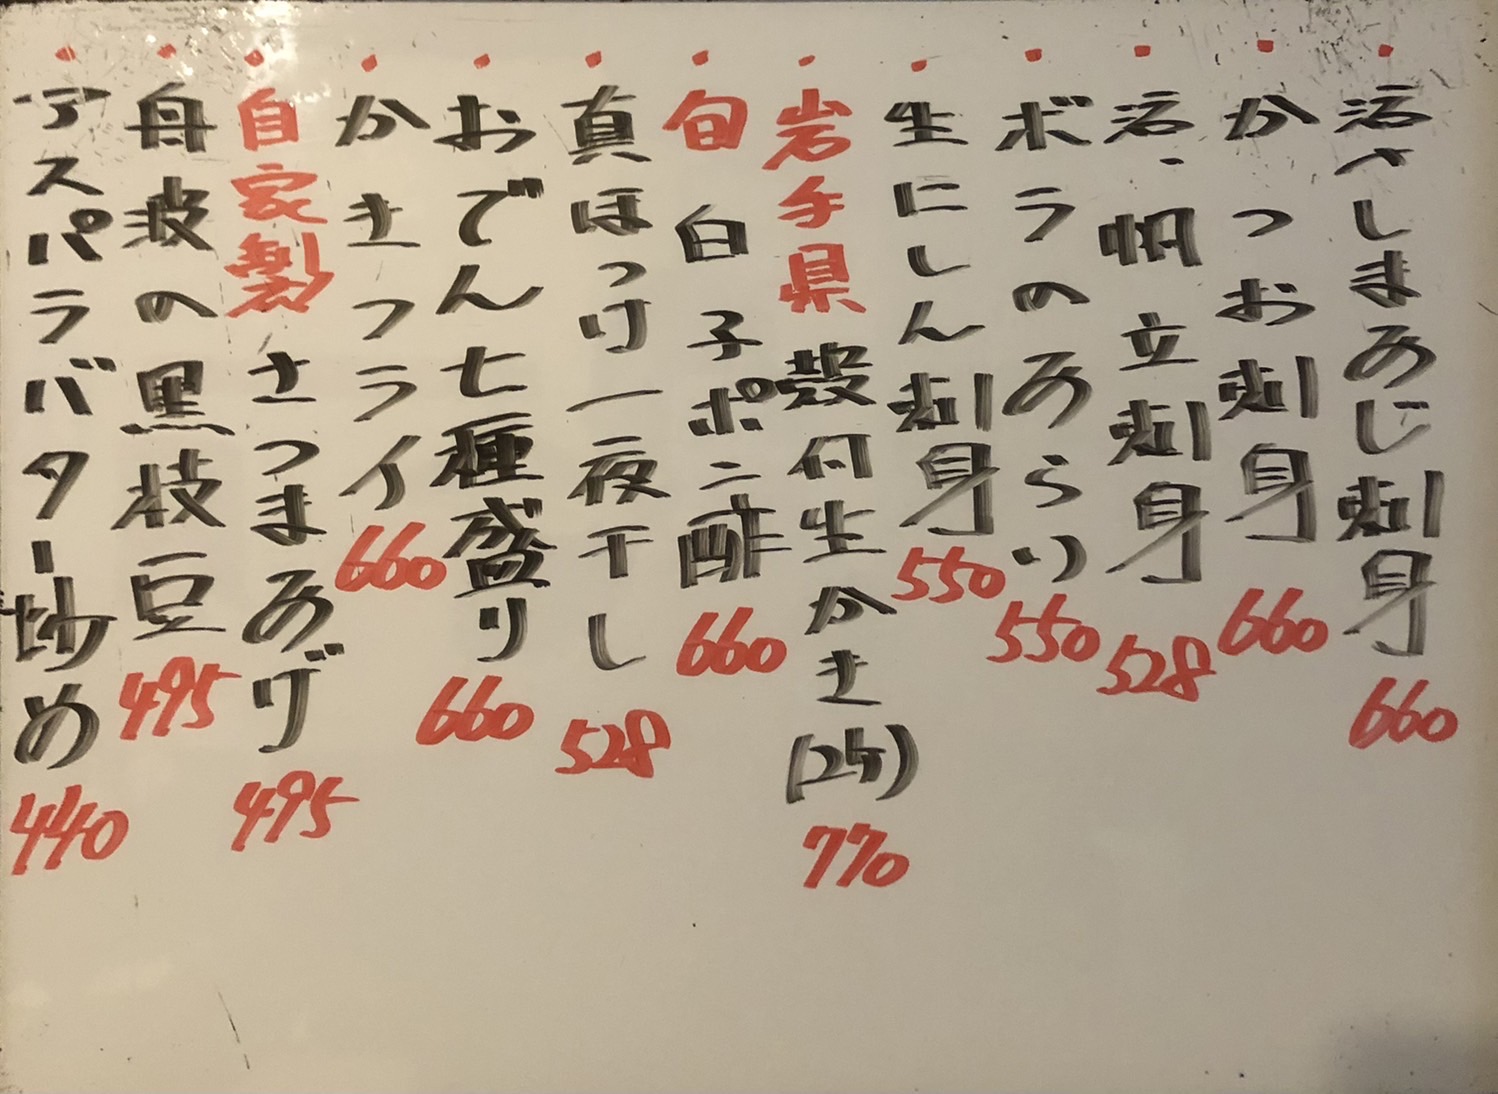 活〆しまあじ刺身 660
かつお刺身 660
活・帆立刺身 528
ボラのあらい 550
生にしん刺身 550
岩手県殻付生かき(2ヶ) 770
旬 白子ポン酢 660
真ほっけ一夜干し 528
おでん七種盛り 660
かきフライ 660
自家製さつまあげ 495
丹波の黒枝豆 495
アスパラバター炒め 440